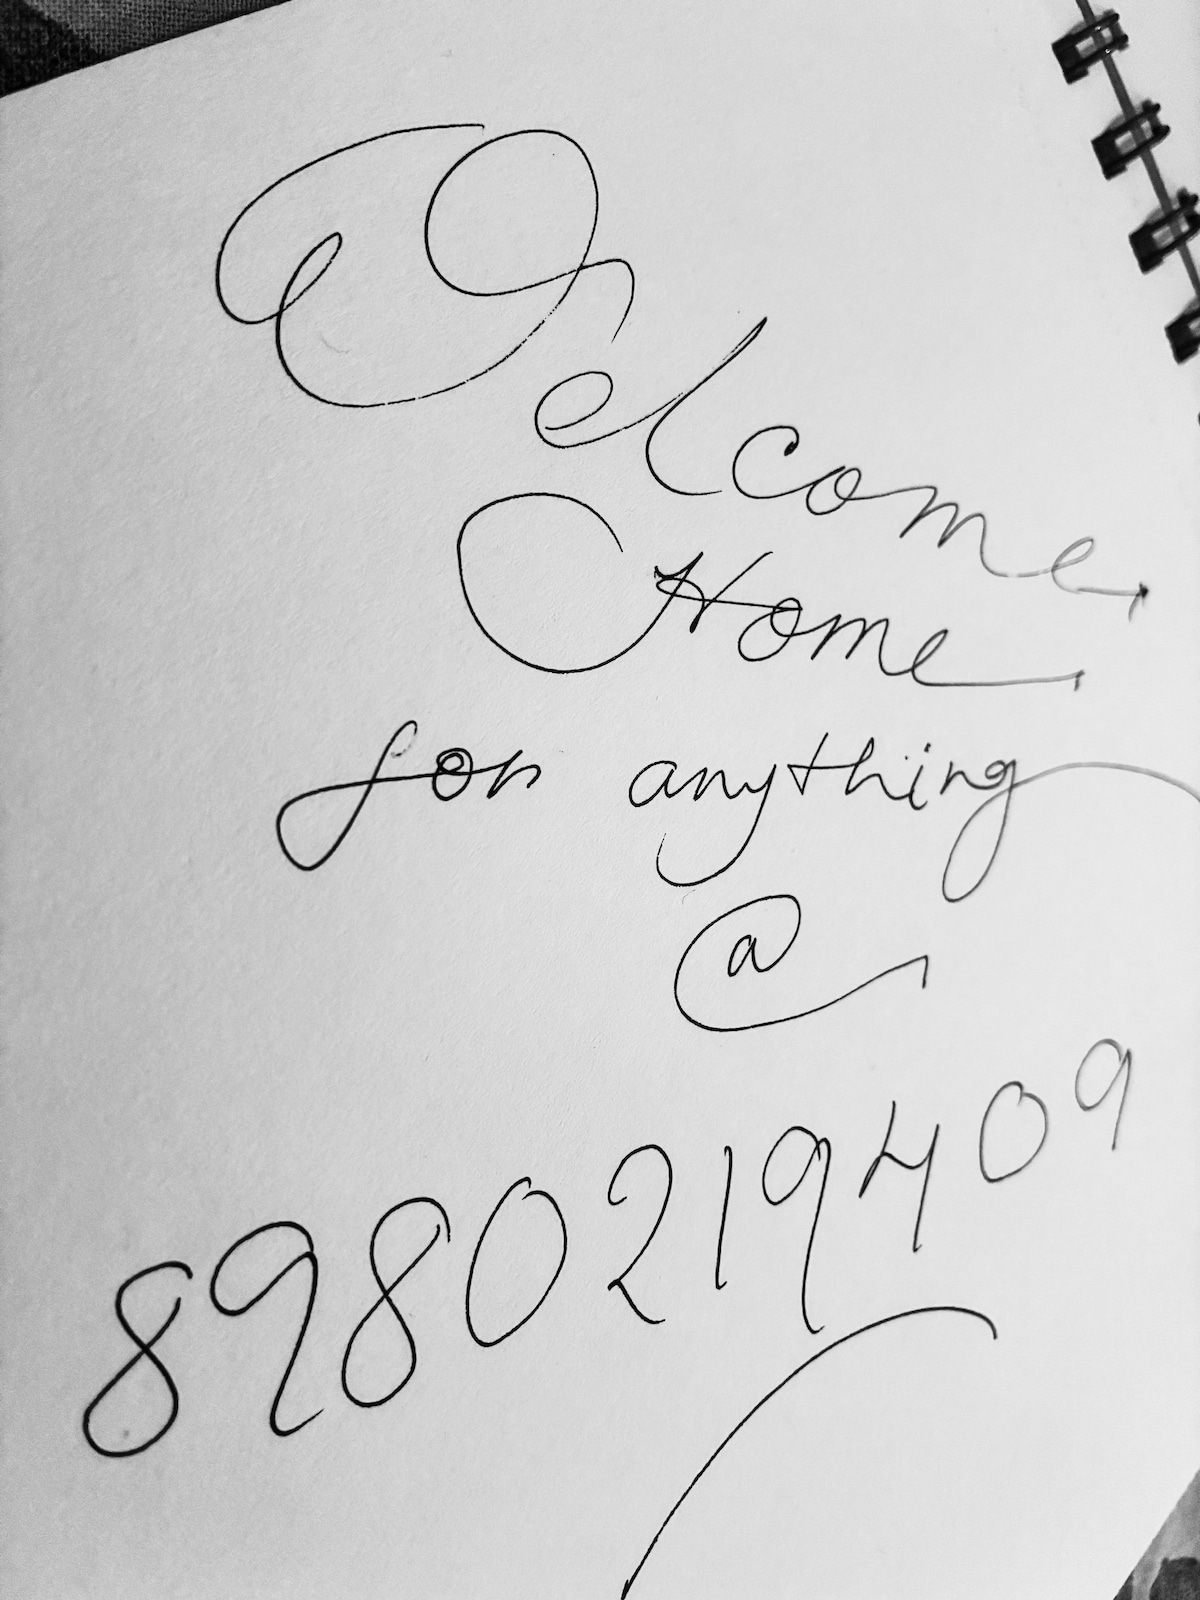 Welcome
Home
for anything
@
8980219409